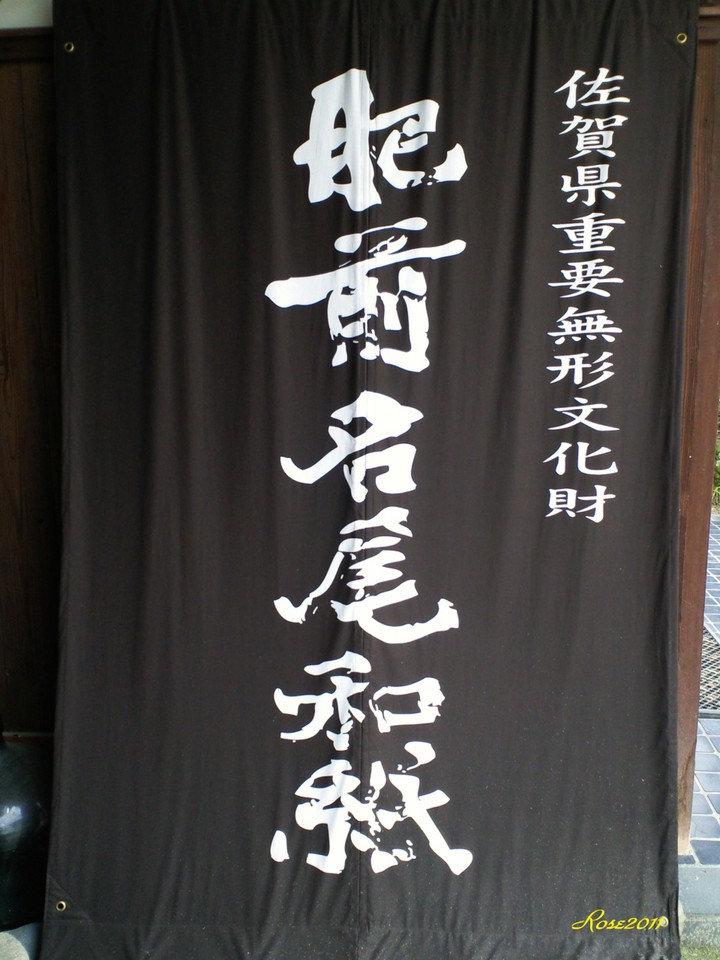 佐賀県重要無形文化財
肥前名尾和紙
Rose2011